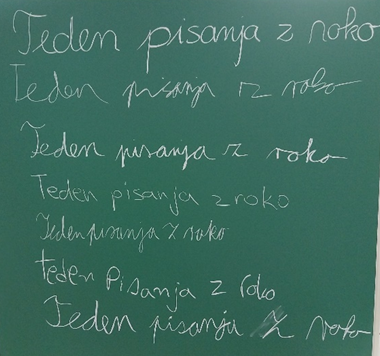 Teden pisanja z roko
Teden pisanja z roko
Teden pisanja z roko
Teden pisanja z roko
Teden pisanja z roko
teden Pisanja z roko
Teden pisanja z roko